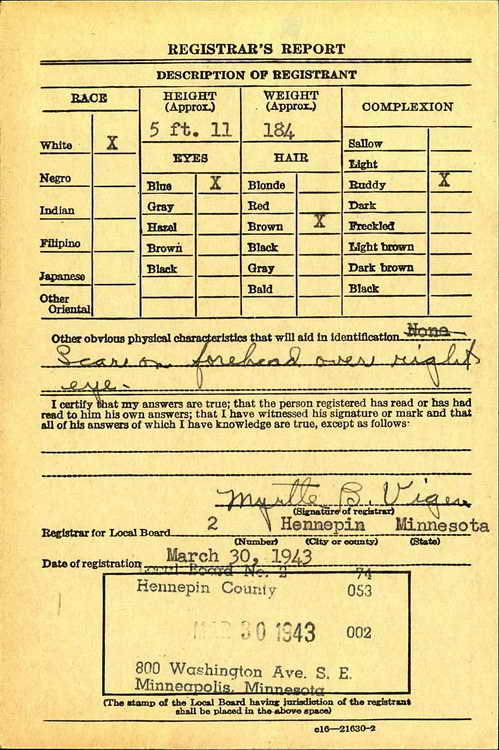 REGISTRAR'S REPORT
DESCRIPTION OF REGISTRANT
RACE
HEIGHT (Approx.)
WEIGHT (Approx.)
COMPLEXION
5 ft. 11
184
White X
Negro
Indian
Filipino
Japanese
Other Oriental
EYES
Blue X
Gray
Hazel
Brown
Black
HAIR
Blonde
Red
Brown X
Black
Gray
Bald
Sallow
Light
Ruddy X
Dark
Freckled
Light brown
Dark brown
Black
Other obvious physical characteristics that will aid in identification None
Scar on forehead over right
eye.
I certify that my answers are true; that the person registered has read or has had
read to him his own answers; that I have witnessed his signature or mark and that
all of his answers of which I have knowledge are true, except as follows:
Myrtle B. Vigen
(Signature of registrar)
Registrar for Local Board 2 Hennepin Minnesota
(Number) (City or county) (State)
Date of registration March 30, 1943
Local Board No. 2 74
Hennepin County 053
MAR 30 1943 002
800 Washington Ave. S. E.
Minneapolis, Minnesota
(The stamp of the Local Board having jurisdiction of the registrant
shall be placed in the above space)
c16—21630-2